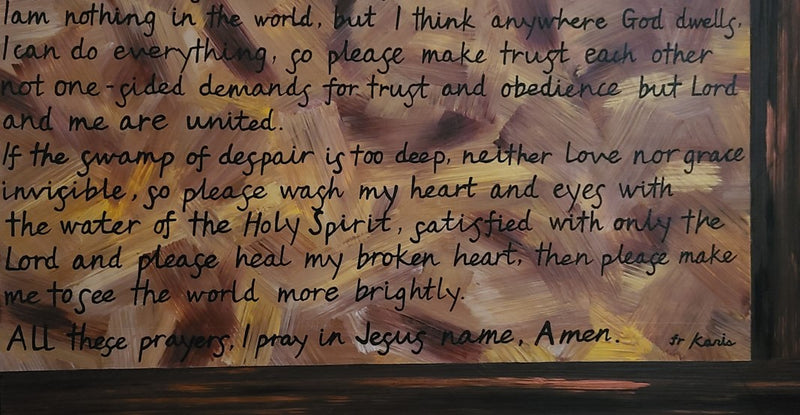 I am nothing in the world, but I think anywhere God dwells,
I can do everything, so please make trust each other
not one-sided demands for trust and obedience but Lord
and me are united.
If the swamp of despair is too deep, neither Love nor grace
invisible, so please wash my heart and eyes with
the water of the Holy Spirit, satisfied with only the
Lord and please heal my broken heart, then please make
me to see the world more brightly.
All these prayers, I pray in Jesus name, Amen.
fr Karis